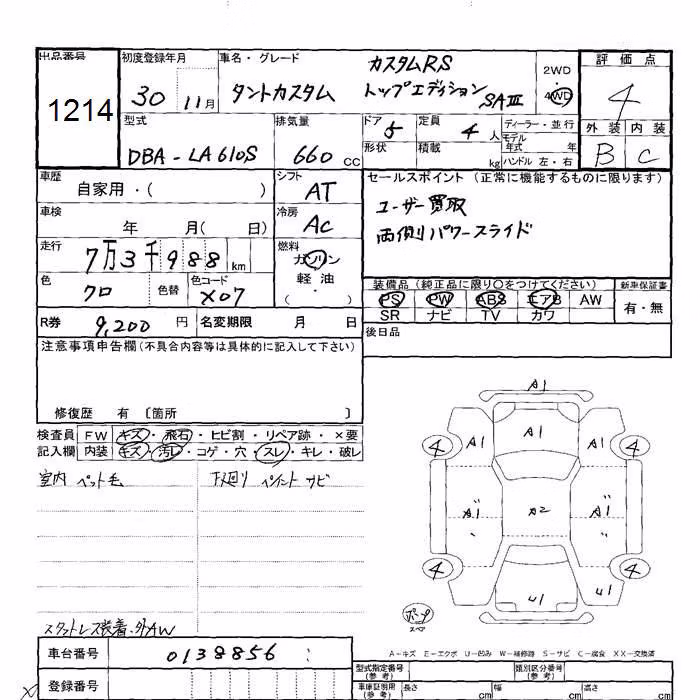 出品番号 初度登録年月 車名・グレード カスタムRS 2WD 評価点
1214 30 11月 タントカスタム トップエディション SAⅢ 4WD 4
型式 排気量 ドア 5 定員 4人 ディーラー・並行 外装 内装
DBA-LA610S 660 cc 形状 積載 kg モデル年式 年 ハンドル 左・右 B C
車歴 自家用・( ) シフト AT セールスポイント (正常に機能するものに限ります)
車検 年 月( 日) 冷房 AC ユーザー買取
走行 7万3千988 km 燃料 ガソリン 両側パワースライド
色 クロ 色替 色コード X07 軽油 ・( ) 装備品(純正品に限り○をつけてください) 新車保証書
PS PW ABS エアB AW 有・無
R券 9,200円 名変期限 月 日 SR ナビ TV カワ
注意事項申告欄(不具合内容等は具体的に記入して下さい) 後日品
修復歴 有 〔箇所 〕
検査員 FW キズ・飛石・ヒビ割・リペア跡・×要
記入欄 内装 キズ・汚レ・コゲ・穴・スレ・キレ・破レ
室内 ペット毛 下廻り ペイント サビ
A1
4 A1 A1 A1 4
A1 A2 A1
4 U1 U1 4
スペア
スタットレス装着、外AW
A-キズ E-エクボ U-凹み W-補修跡 S-サビ C-腐食 XX-交換済
車台番号 0138856 型式指定番号(参考) 類別区分番号(参考)
登録番号 車庫証明用(参考) 長さ cm 幅 cm 高さ cm